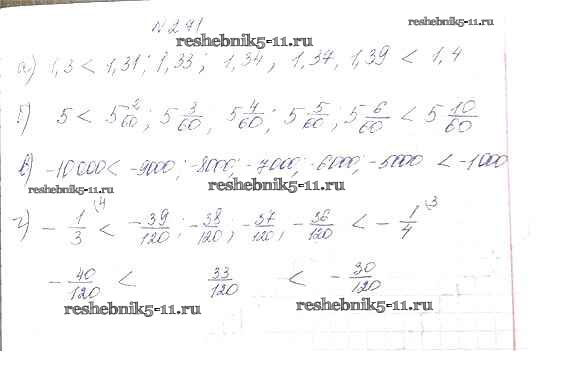 №291
reshebnik5-11.ru
reshebnik5-11.ru
а) 1,3 < 1,31; 1,33; 1,34, 1,37, 1,39 < 1,4
б) 5 < 5 2/60; 5 3/60, 5 4/60; 5 5/60; 5 6/60 < 5 10/60
в) -10000 < -9000; -8000; -7000; -6000, -5000 < -1000
reshebnik5-11.ru
reshebnik5-11.ru
г) - 1/3 (4 < -39/120; -38/120; -37/120, -36/120 < - 1/4 (3
- 40/120 < 33/120 < - 30/120
reshebnik5-11.ru
reshebnik5-11.ru